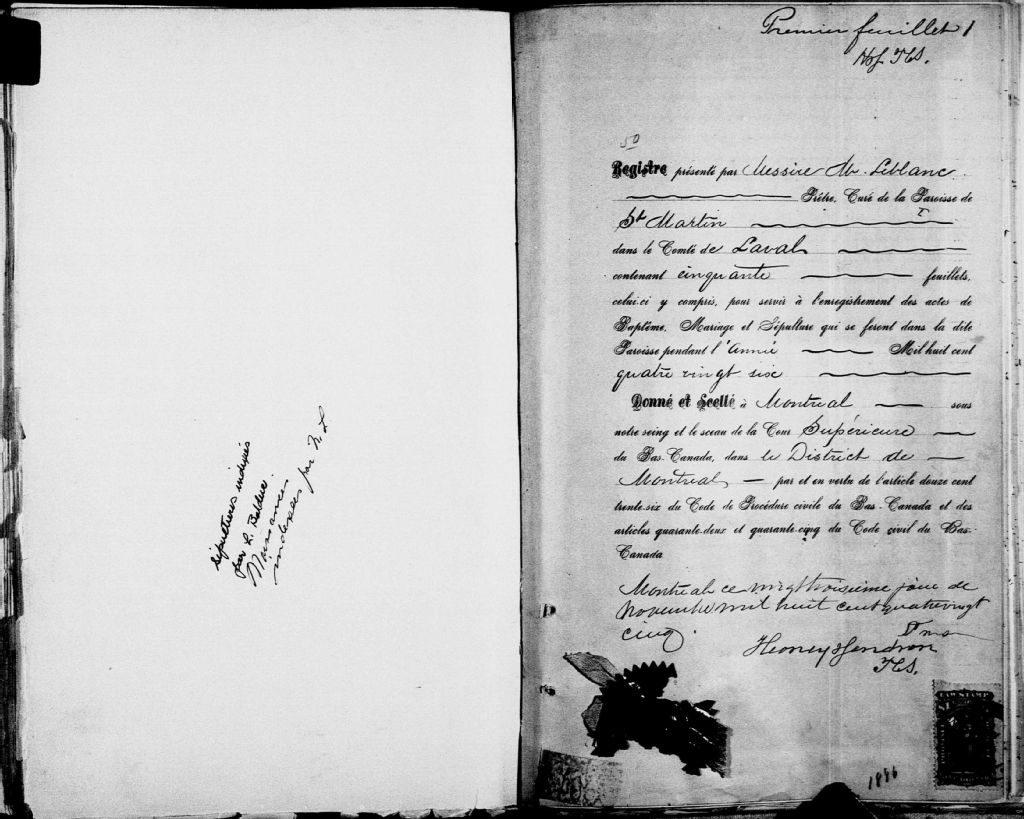 Sépultures indexés
par R. Bolduc.
Naissances
indexées par N L
Premier feuillet 1
50
Registre présenté par Messire M. Leblanc
Prêtre, Curé de la Paroisse de
St Martin
dans le Comté de Laval
contenant cinquante feuillets,
celui-ci y compris, pour servir à l'enregistrement des actes de
Baptême, Mariage et Sépulture qui se feront dans la dite
Paroisse pendant l'Année Mil huit cent
quatre vingt six
Donné et Scellé à Montréal sous
notre seing et le sceau de la Cour Supérieure
du Bas-Canada, dans le District de
Montréal par et en vertu de l'article douze cent
trente-six du Code de Procédure civile du Bas-Canada et des
articles quarante-deux et quarante-cinq du Code civil du Bas-
Canada
Montreal ce vingttroisieme jour de
Novembre mil huit cent quatrevingt
cinq.
LAW STAMP
1886